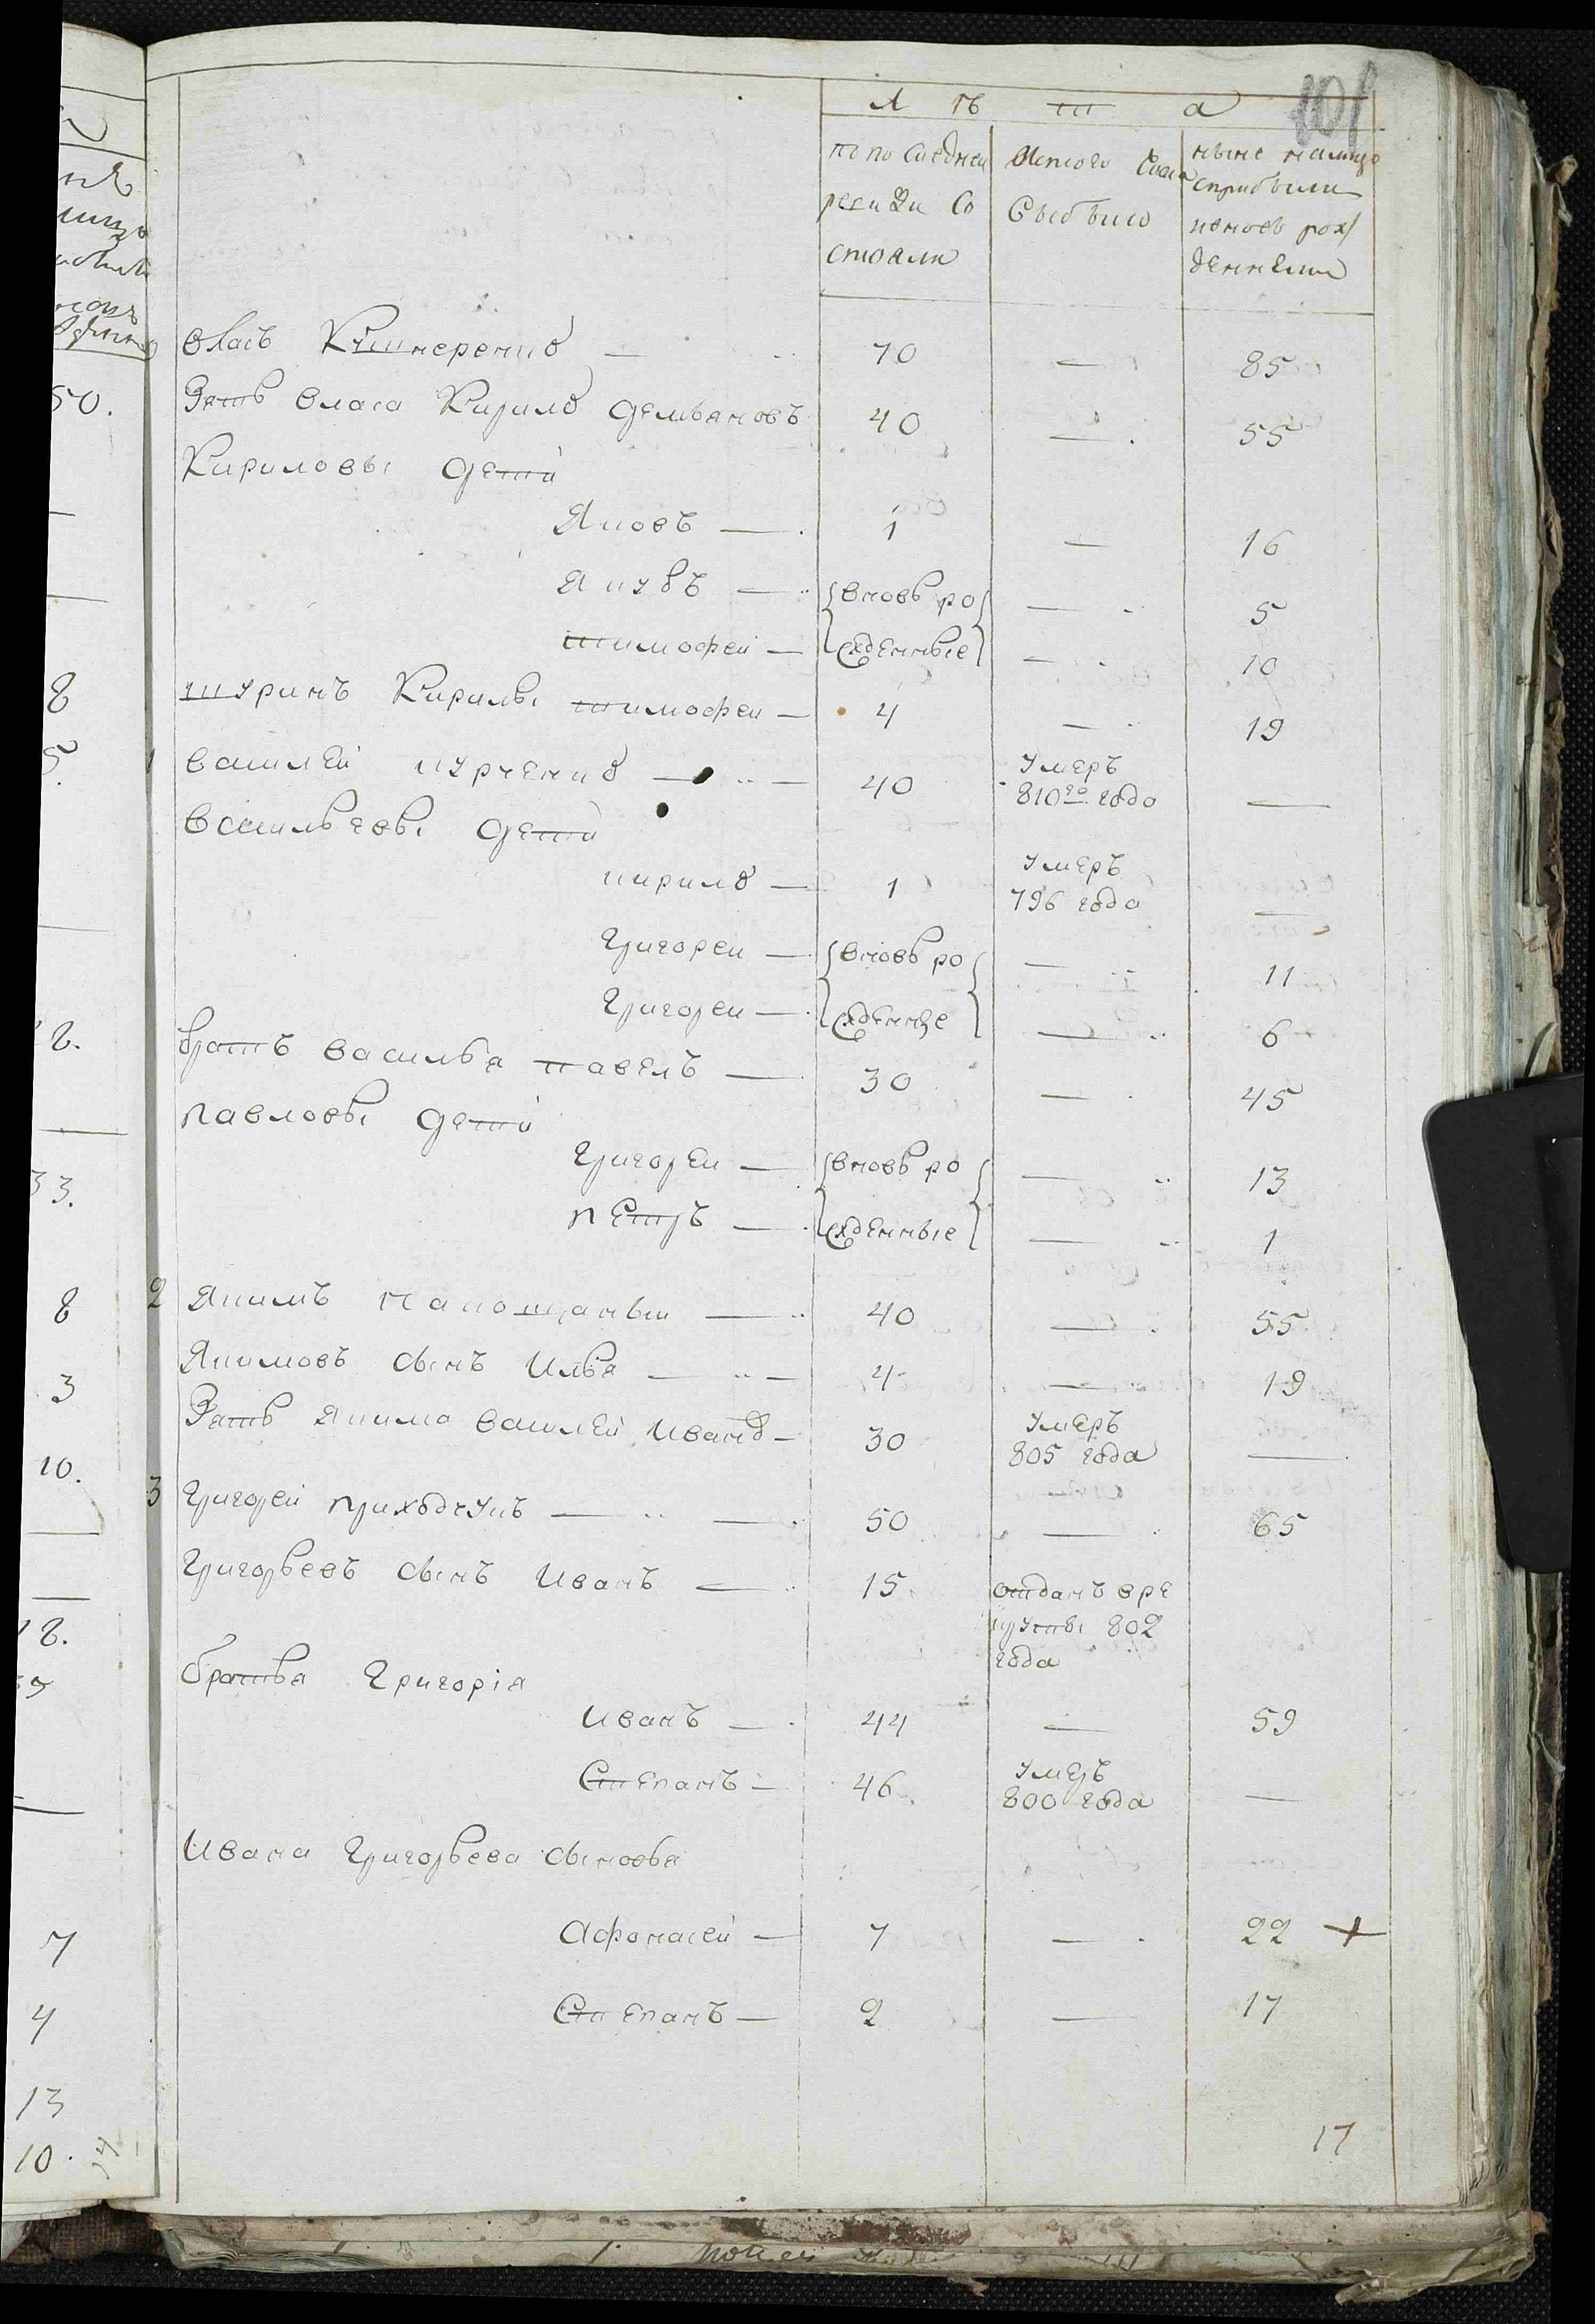 101
Л ѣ т а
по последней
ревизіи со
стояли
Изтого числа
выбыло
ныне налицо
сприбыли
ивновь рож
денными
Власъ Кушнеренко — 70 — 85
Зять Власа Кирило Демьяновъ 40 — 55
Кириловы дети
Яковъ — 1 — 16
Якувъ — вновь ро — 5
тимофей — жденные — 10
шуринъ Кирилы тимофеи — 4 — 19
1 Василей курченко — 40 умеръ 810го года —
Васильевы дети
кирило — 1 умеръ 796 года —
Григореи — вновь ро — 11
Григореи — жденные — 6
братъ Василья павелъ — 30 — 45
павловы дети
Григореи — вновь ро — 13
петръ — жденные — 1
2 Якимъ — 40 — 55
Якимовъ сынъ Илья — 4 — 19
Зять Якима Василей Иванов — 30 умеръ 805 года —
3 Григорей приходчукъ — 50 — 65
Григорьевъ сынъ Иванъ — 15 отданъ вре
круты 802
года
братья Григорія
Иванъ — 44 — 59
Степанъ — 46 умеръ 800 года —
Ивана Григорьева сыновья
Афонасей — 7 — 22 +
Степанъ — 2 — 17
17
50.
8
5.
33.
8
3
10.
7
4
13
10.